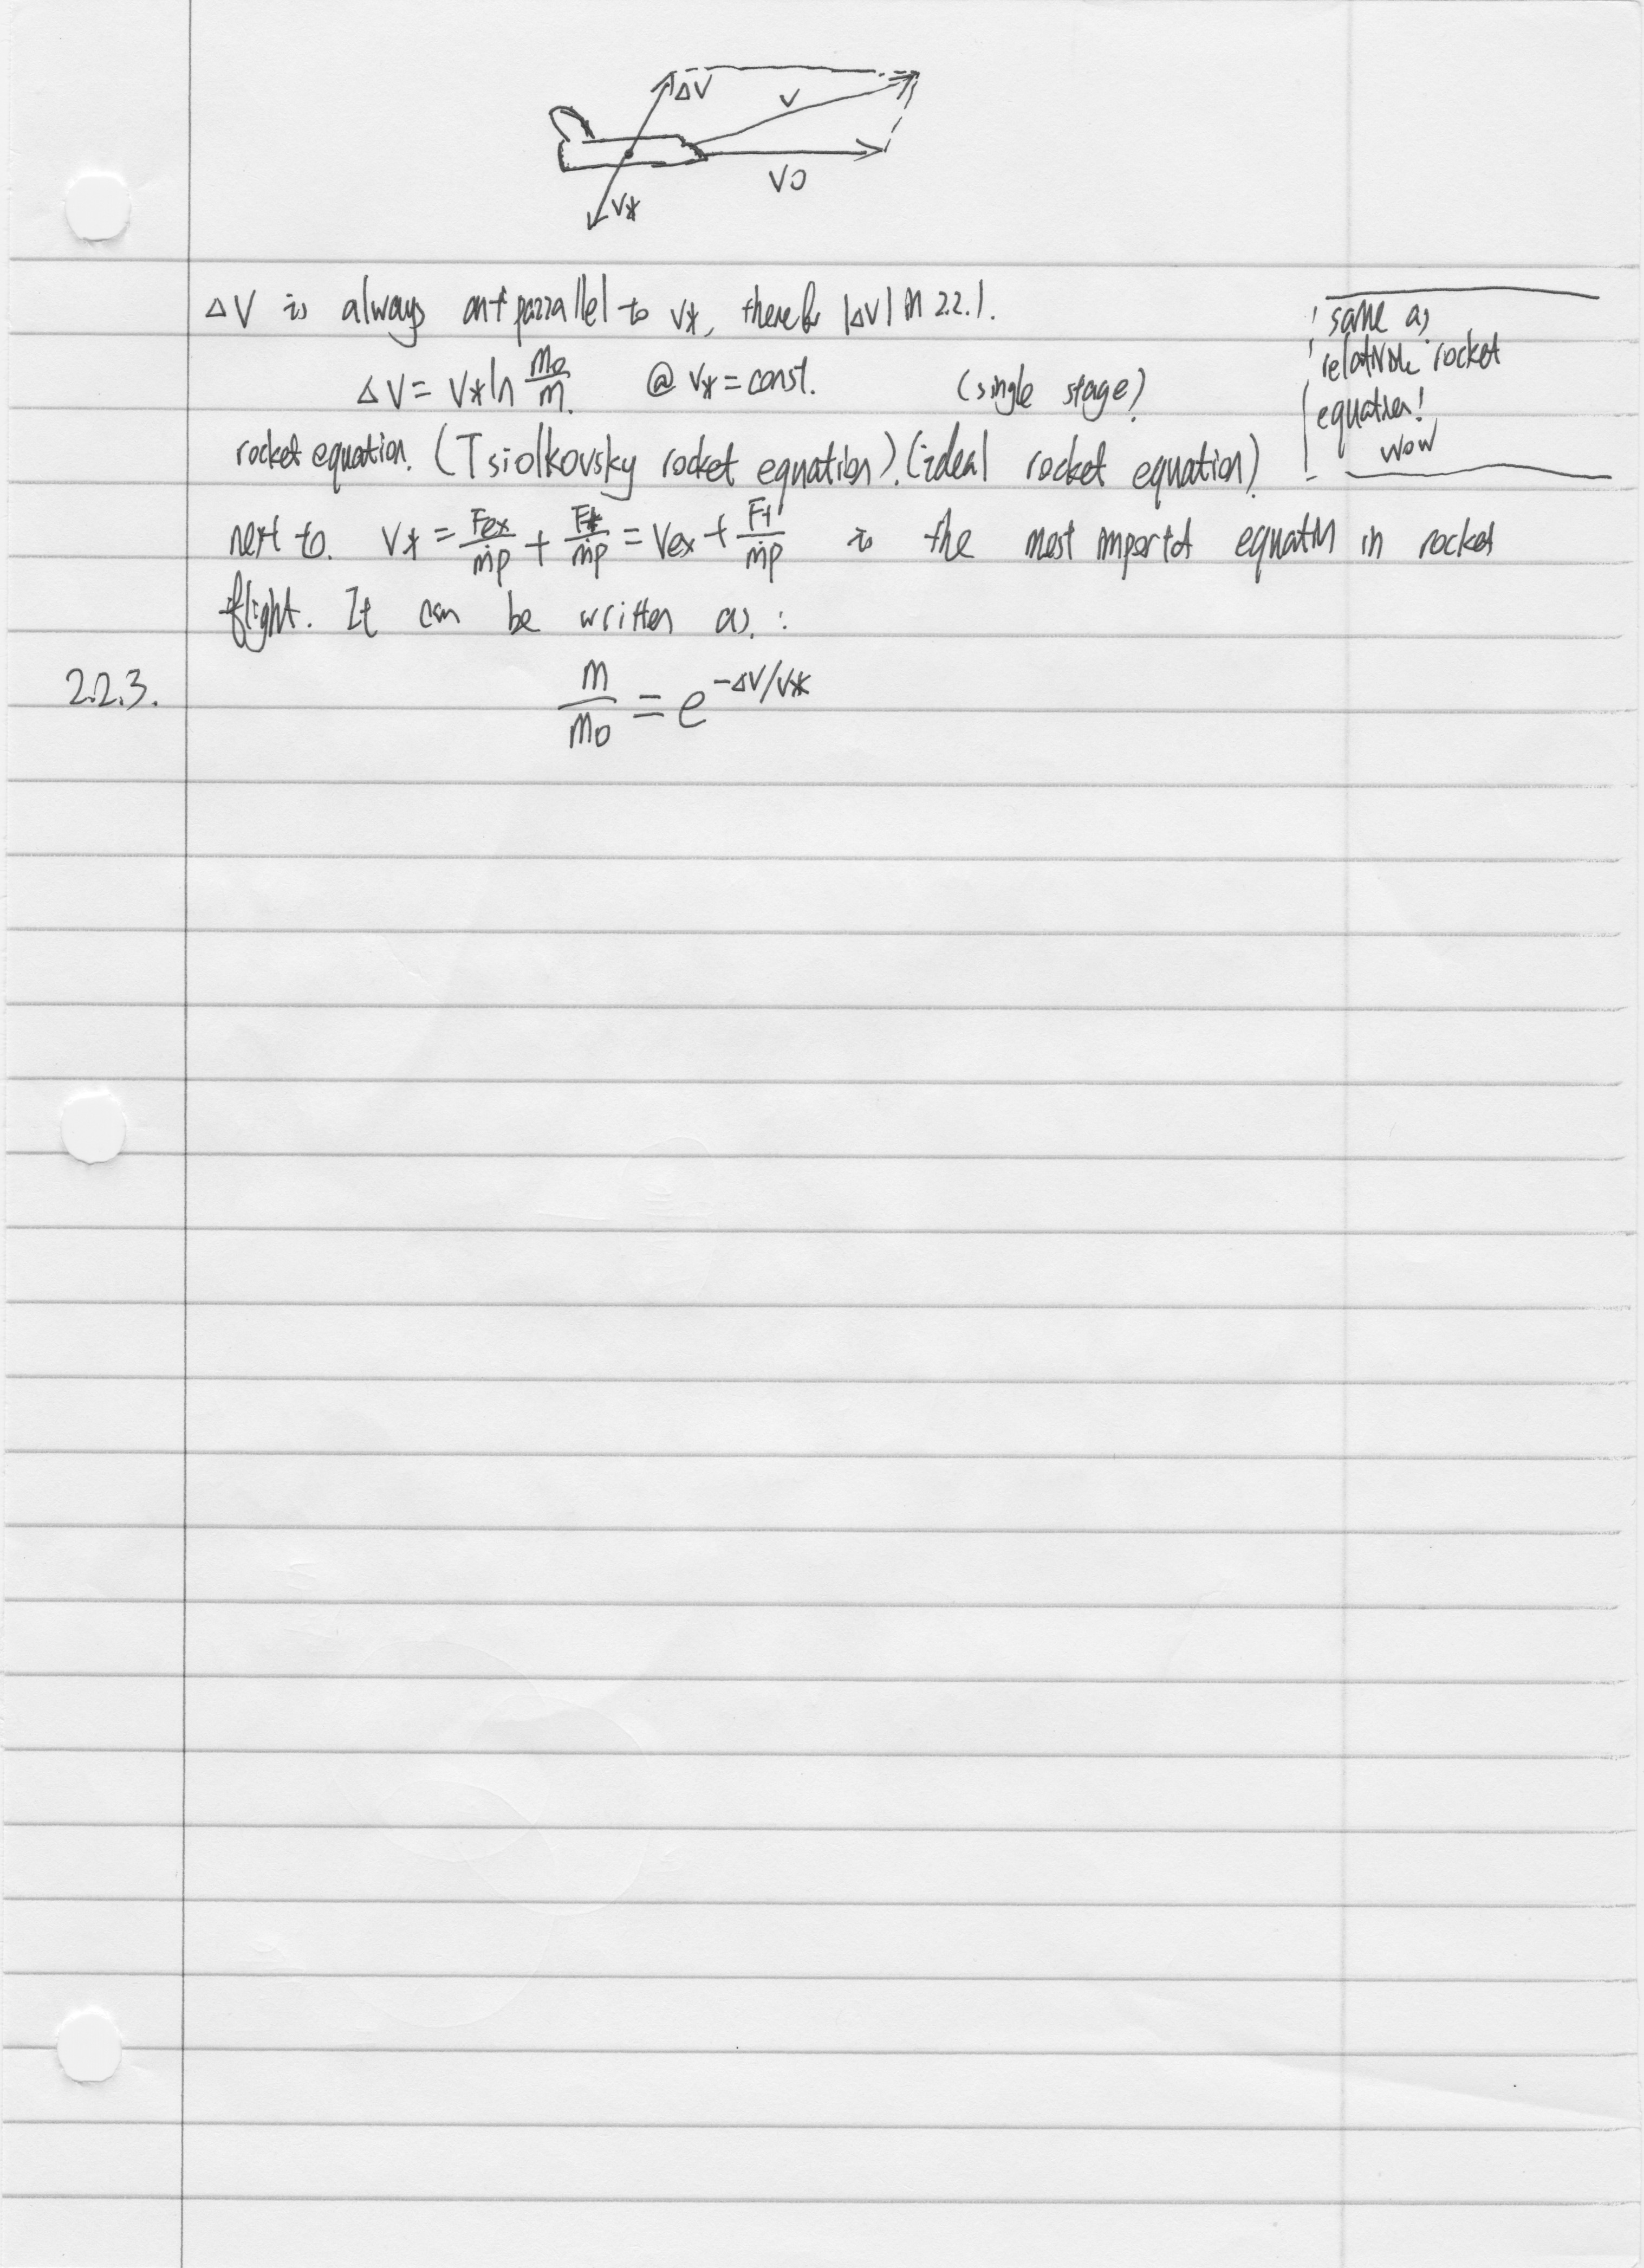 ΔV
V
V0
V*
ΔV is always antiparrallel to V*, therefor |ΔV| in 2.2.1.
ΔV = V* ln m0/m. @ V* = const. (single stage)
rocket equation. (Tsiolkovsky rocket equation). (ideal rocket equation)
same as
rocket
equation!
wow
next to. V* = Fex/ṁp + Ft/ṁp = Vex + Ft/ṁp is the most importat equation in rocket
flight. It can be written as. :
2.2.3. m/m0 = e^-ΔV/V*